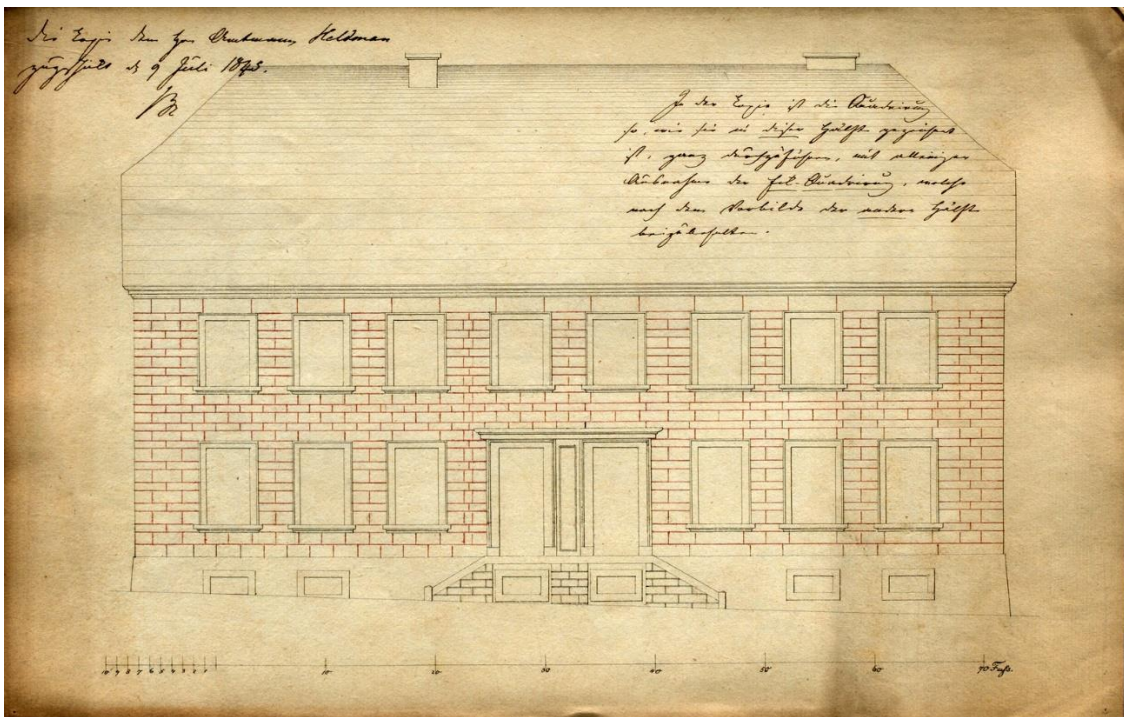 Die Copie dem Hrn Amtmann Heldman
zugestellt d 9 Juli 1843.
In der Copie ist die Quadrirung
so, wie sie in dieser Hälfte gezeichnet
ist, ganz durchzuführen, mit alleiniger
Ausnahme der Eck-Quadrirung, welche
nach dem Vorbilde der andern Hälfte
beizubehalten.
10 9 8 7 6 5 4 3 2 1 10 20 30 40 50 60 70 Fuß.